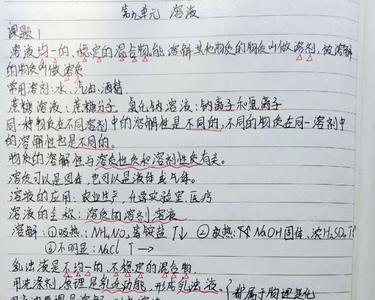 第九单元 溶液
课题1
溶液均一的、稳定的混合物,能溶解其他物质的物质叫做溶剂,被溶解
的物质叫做溶质
常用溶剂:水、汽油、酒精
蔗糖溶液:蔗糖分子,氯化钠溶液:钠离子和氯离子
同一种物质在不同溶剂中的溶解性是不同的,不同的物质在同一溶剂中
的溶解性也是不同的。
物质的溶解性与溶质性质和溶剂性质有关。
溶质可以是固体,也可以是液体或气体。
溶液的应用:农业生产,化学实验室,医疗
溶液的名称:溶质的溶剂溶液
溶解:①吸热:NH₄NO₃等铵盐 T↓ ②放热: NaOH固体,浓H₂SO₄ T↑
③不明显:NaCl T→
乳浊液是不均一的、不稳定的混合物
用洗涤剂 原理是乳化功能,形成乳浊液
都属于物理变化